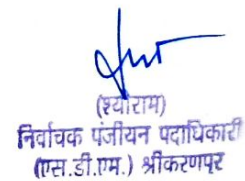 (श्योराम)
निर्वाचक पंजीयन पदाधिकारी
(एस.डी.एम.) श्रीकरणपुर